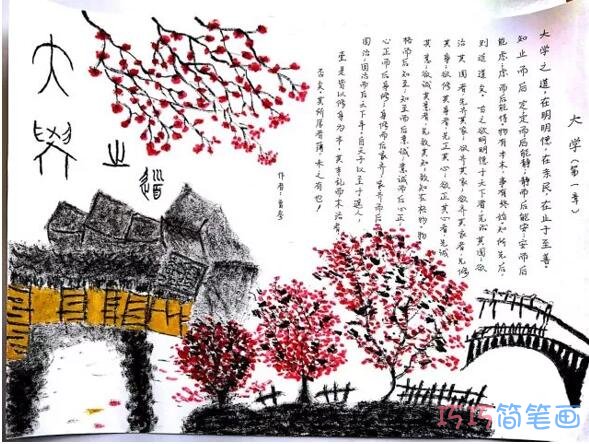 大学(第一章)
大学之道,在明明德,在亲民,在止于至善。
知止而后定定而后能静;静而后能安;安而后
能虑;虑而后能得物有本末,事有终始,知所先后,
则近道矣。古之欲明明德于天下者;先治其国;欲
治其国者先齐其家;欲齐其家者,先修
其身;欲修其身者;先正其心;欲正其心者;先诚
其意;欲诚其意者;先致其知;致知在格物物
格而后知至;知至而后意诚;意诚而后心正
心正而后身修;身修而后家齐家齐而后
国治;国治而后天下平。自天子以至于庶人,
壹是皆以修身为本。其本乱而末治者,
否矣。其所厚者薄,未之有也!
作者:曾参
大学之道
巧巧简笔画